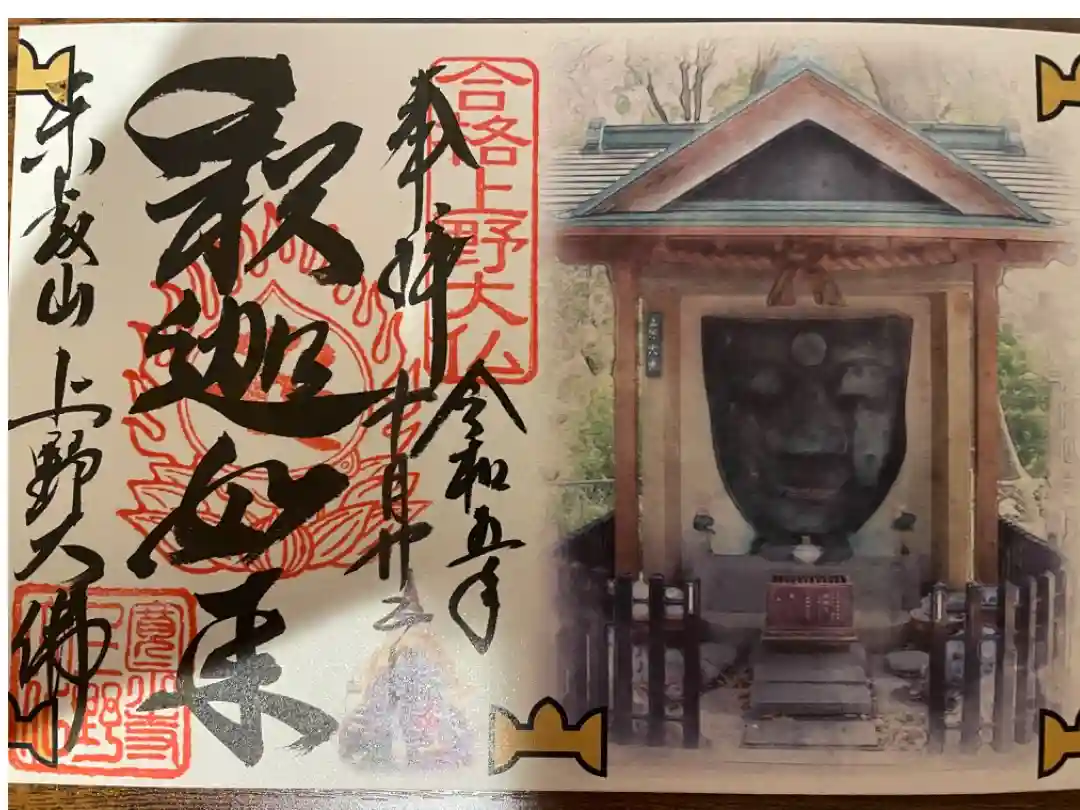 合格上野大仏
奉拝
令和五年
十月廿
釈迦如来
東叡山 上野大佛
寛永寺